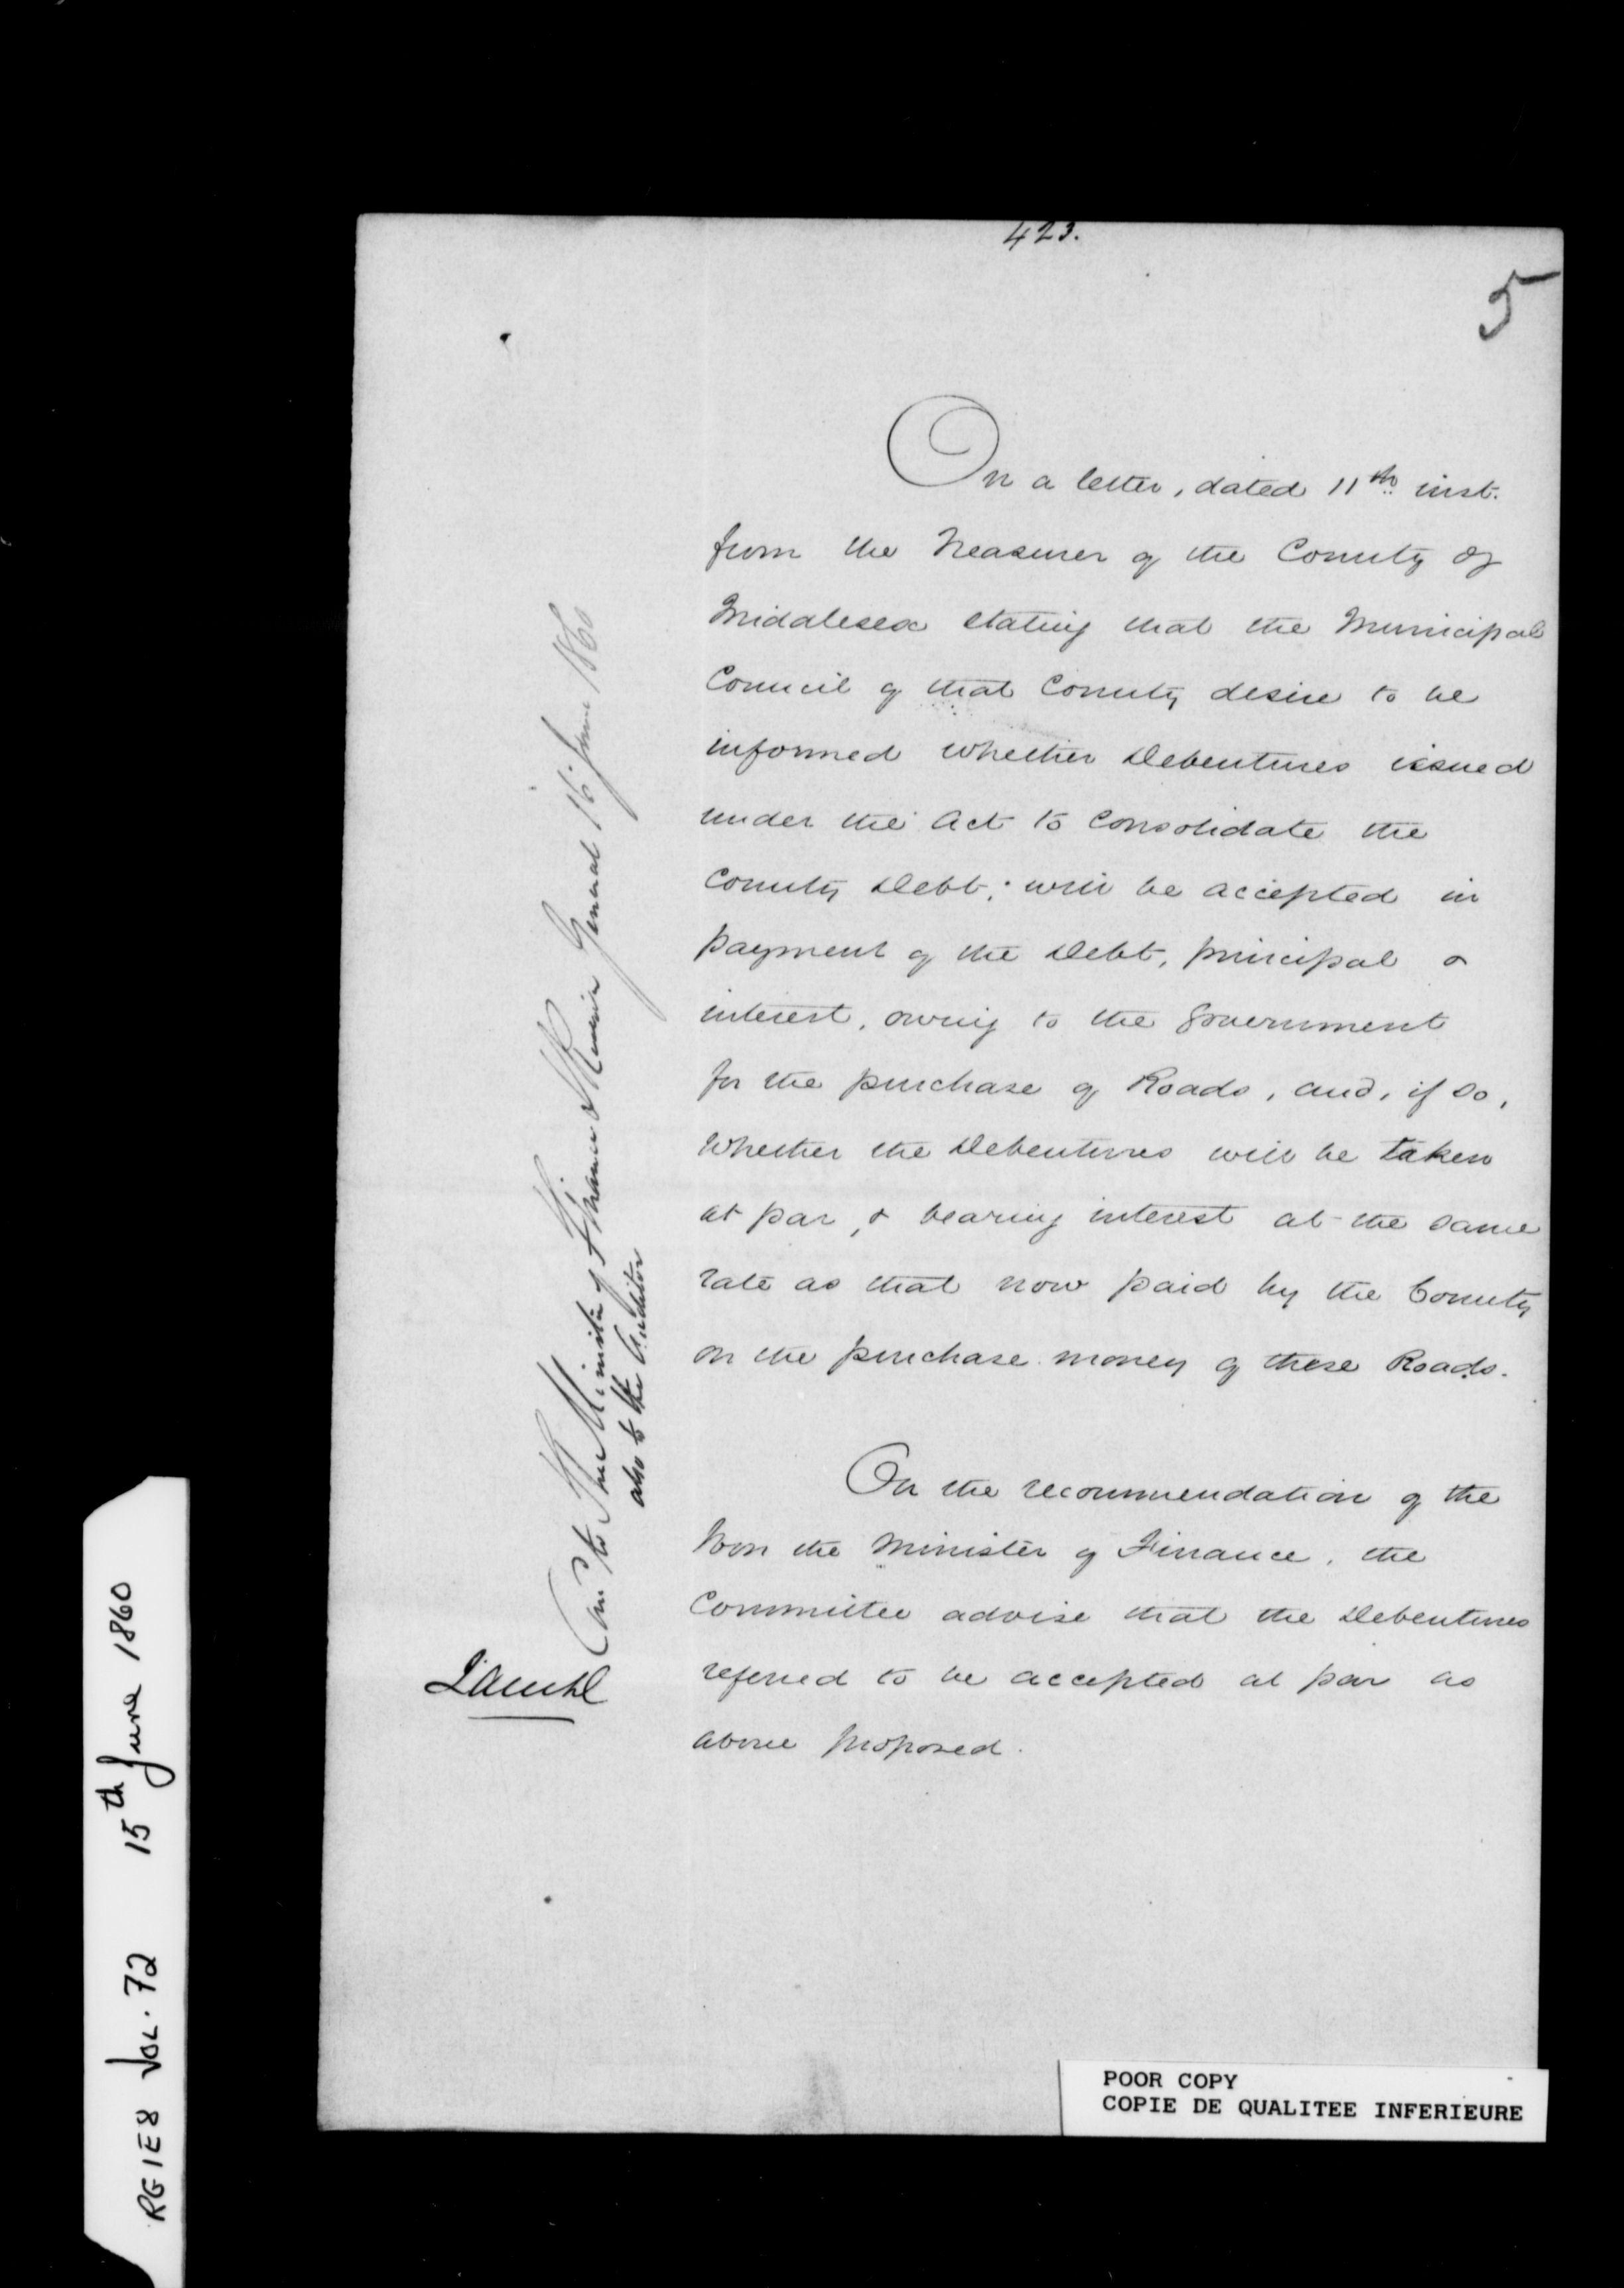 423.
5
On a letter, dated 11th inst.
from the Treasurer of the County of
Middlesex stating that the Municipal
Council of that County desire to be
informed whether Debentures issued
under the Act to Consolidate the
County Debt, will be accepted in
payment of the Debt, principal &
interest, owing to the Government
for the purchase of Roads, and, if so,
whether the Debentures will be taken
at par, & bearing interest at the same
rate as that now paid by the County
on the purchase money of these Roads.
On the recommendation of the
Hon the Minister of Finance, the
Committee advise that the Debentures
referred to be accepted at par as
above proposed.
to The Minister of Finance & Receiver General 16 June 1860
also to the Auditor
RG1E8 VOL. 72 15th June 1860
POOR COPY
COPIE DE QUALITEE INFERIEURE